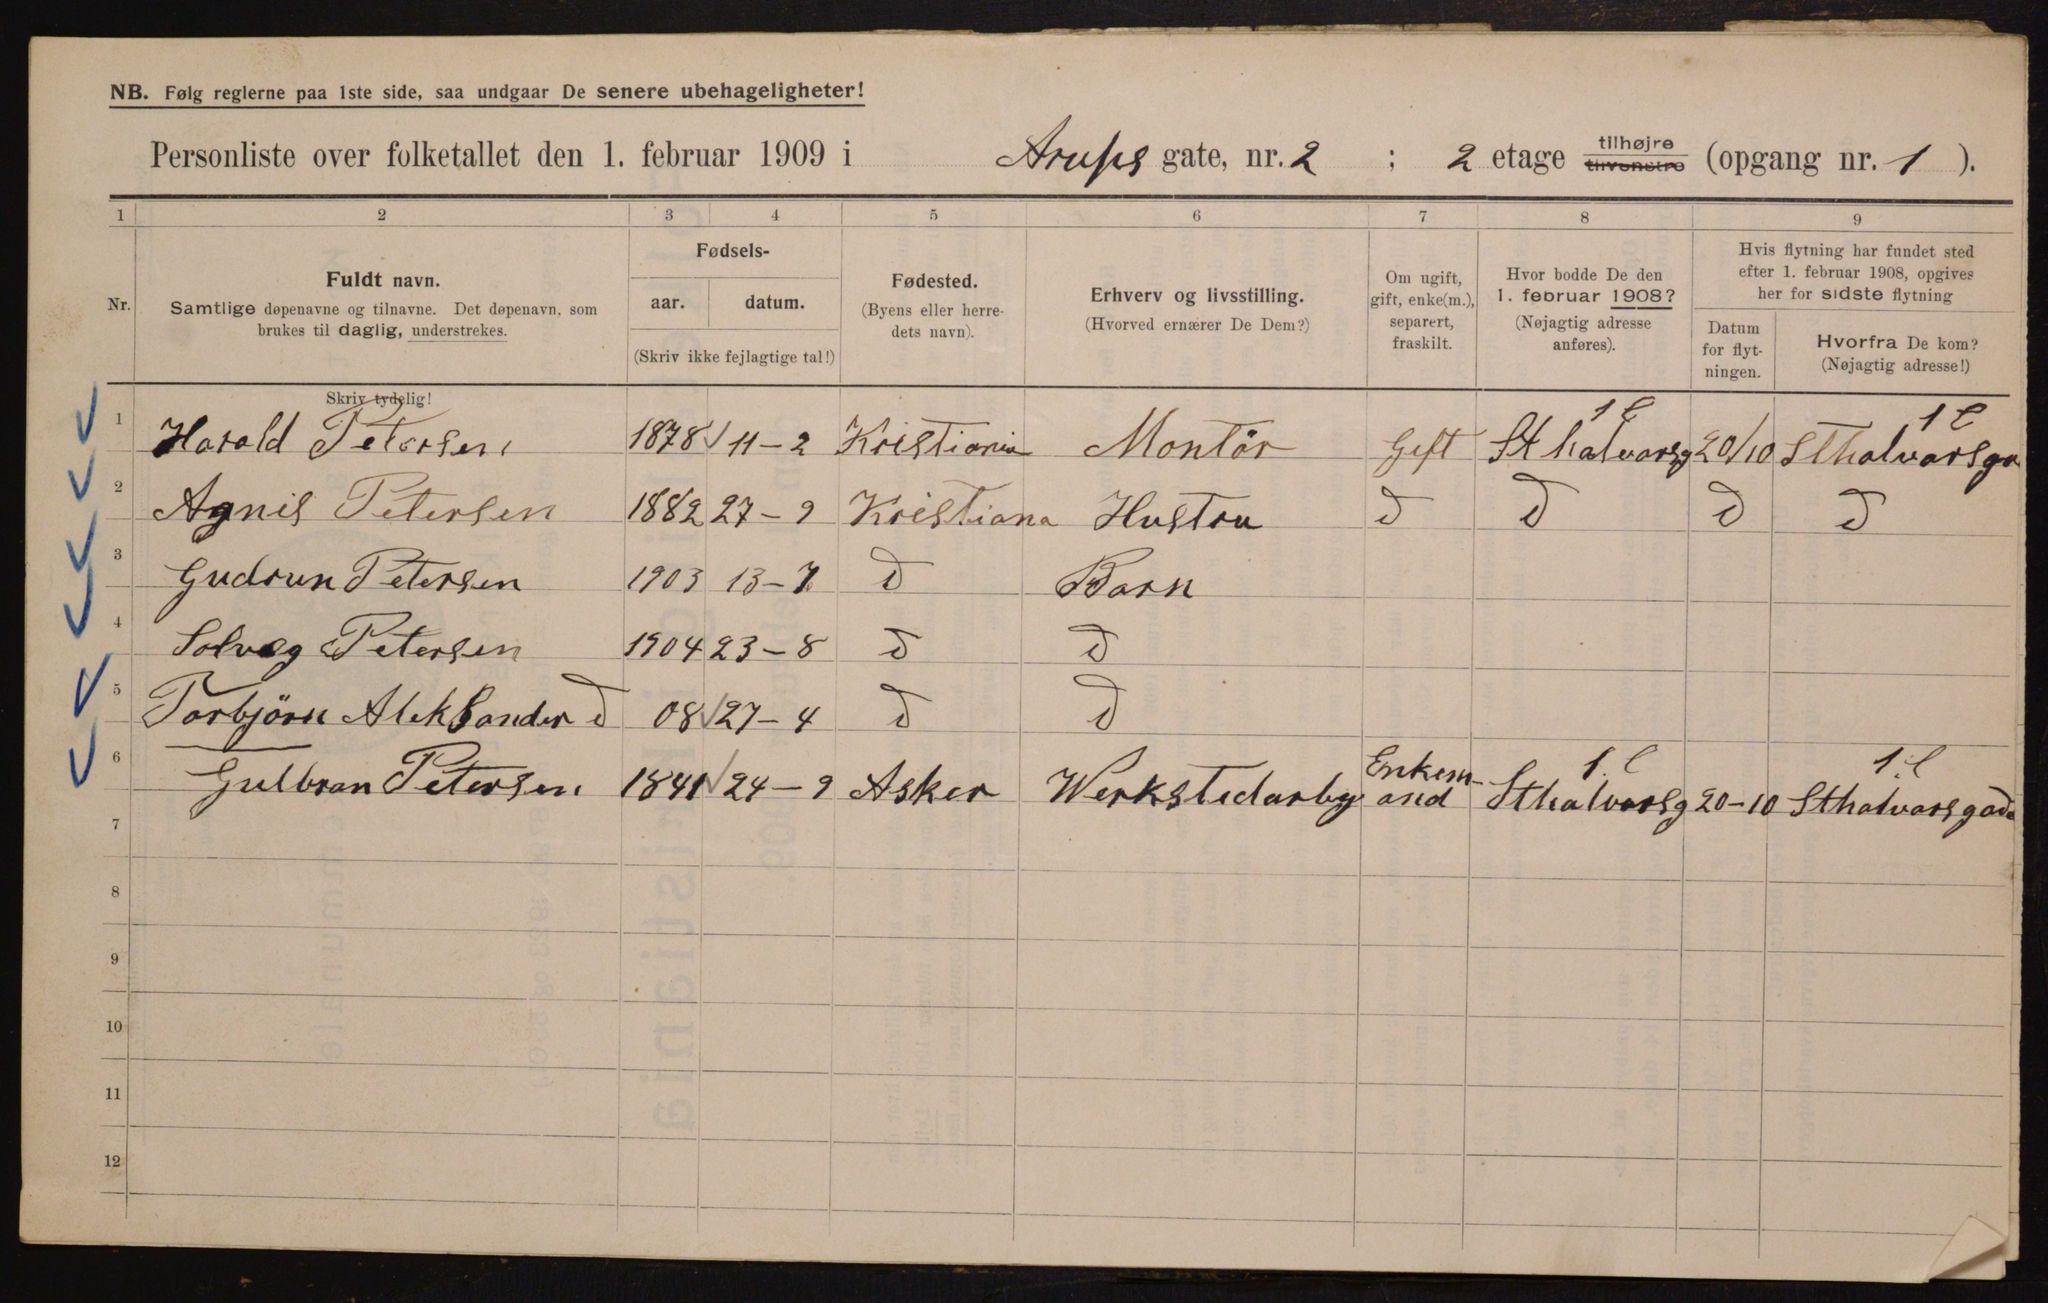 NB. Følg reglerne paa 1ste side, saa undgaar De senere ubehageligheter!
Personliste over folketallet den 1. februar 1909 i Arups gate, nr. 2 ; 2 etage tilhøjre tilvenstre (opgang nr. 1 ).
1 2 3 4 5 6 7 8 9
Nr.
Fuldt navn.
Samtlige døpenavne og tilnavne. Det døpenavn, som
brukes til daglig, understrekes.
Fødsels-
aar. datum.
(Skriv ikke fejlagtige tal!)
Fødested.
(Byens eller herre-
dets navn).
Erhverv og livsstilling.
(Hvorved ernærer De Dem?)
Om ugift,
gift, enke(m.),
separert,
fraskilt.
Hvor bodde De den
1. februar 1908?
(Nøjagtig adresse
anføres).
Hvis flytning har fundet sted
efter 1. februar 1908, opgives
her for sidste flytning
Datum
for flyt-
ningen.
Hvorfra De kom?
(Nøjagtig adresse!)
Skriv tydelig!
1 Harald Petersen 1878 11-2 Kristiania Montör Gift St halvarsg 1 C 20/10 St halvarsga 1 C
2 Agnis Petersen 1882 27-9 Kristiana Hustru D D D D
3 Gudrun Petersen 1903 13-7 D Barn
4 Solveg Petersen 1904 23-8 D D
5 Torbjörn Aleksander D 08 27-4 D D
6 Gulbran Petersen 1841 24-9 Asker Werkstedarby Enkem-and St halvarsg 1. C 20-10 St halvarsgade 1. C
7
8
9
10
11
12